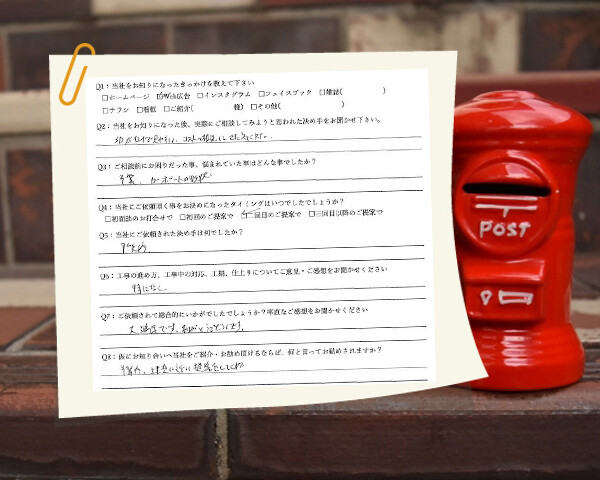 Q1：当社をお知りになったきっかけを教えて下さい
□ホームページ ☑Web広告 □インスタグラム □フェイスブック □雑誌( )
□チラシ □看板 □ご紹介( 様) □その他( )
Q2：当社をお知りになった後、実際にご相談してみようと思われた決め手をお聞かせ下さい。
Q3：ご相談前にお困りだった事、悩まれていた事はどんな事でしたか？
予算、カーポートの形状
Q4：当社にご依頼頂く事をお決めになったタイミングはいつでしたでしょうか？
□初回読のお打合せで □初回のご提案で ☑二回目のご提案で □三回目以降のご提案で
Q5：当社にご依頼された決め手は何でしたか？
Q6：工事の進め方、工事中の対応、工期、仕上りについてご意見・ご感想をお聞かせください
特になし
Q7：ご依頼されて総合的にいかがでしたでしょうか？率直なご感想をお聞かせください
大満足です。ありがとうございます。
Q8：仮にお知り合いへ当社をご紹介・お勧め頂けるならば、何と言ってお勧めされますか？
POST